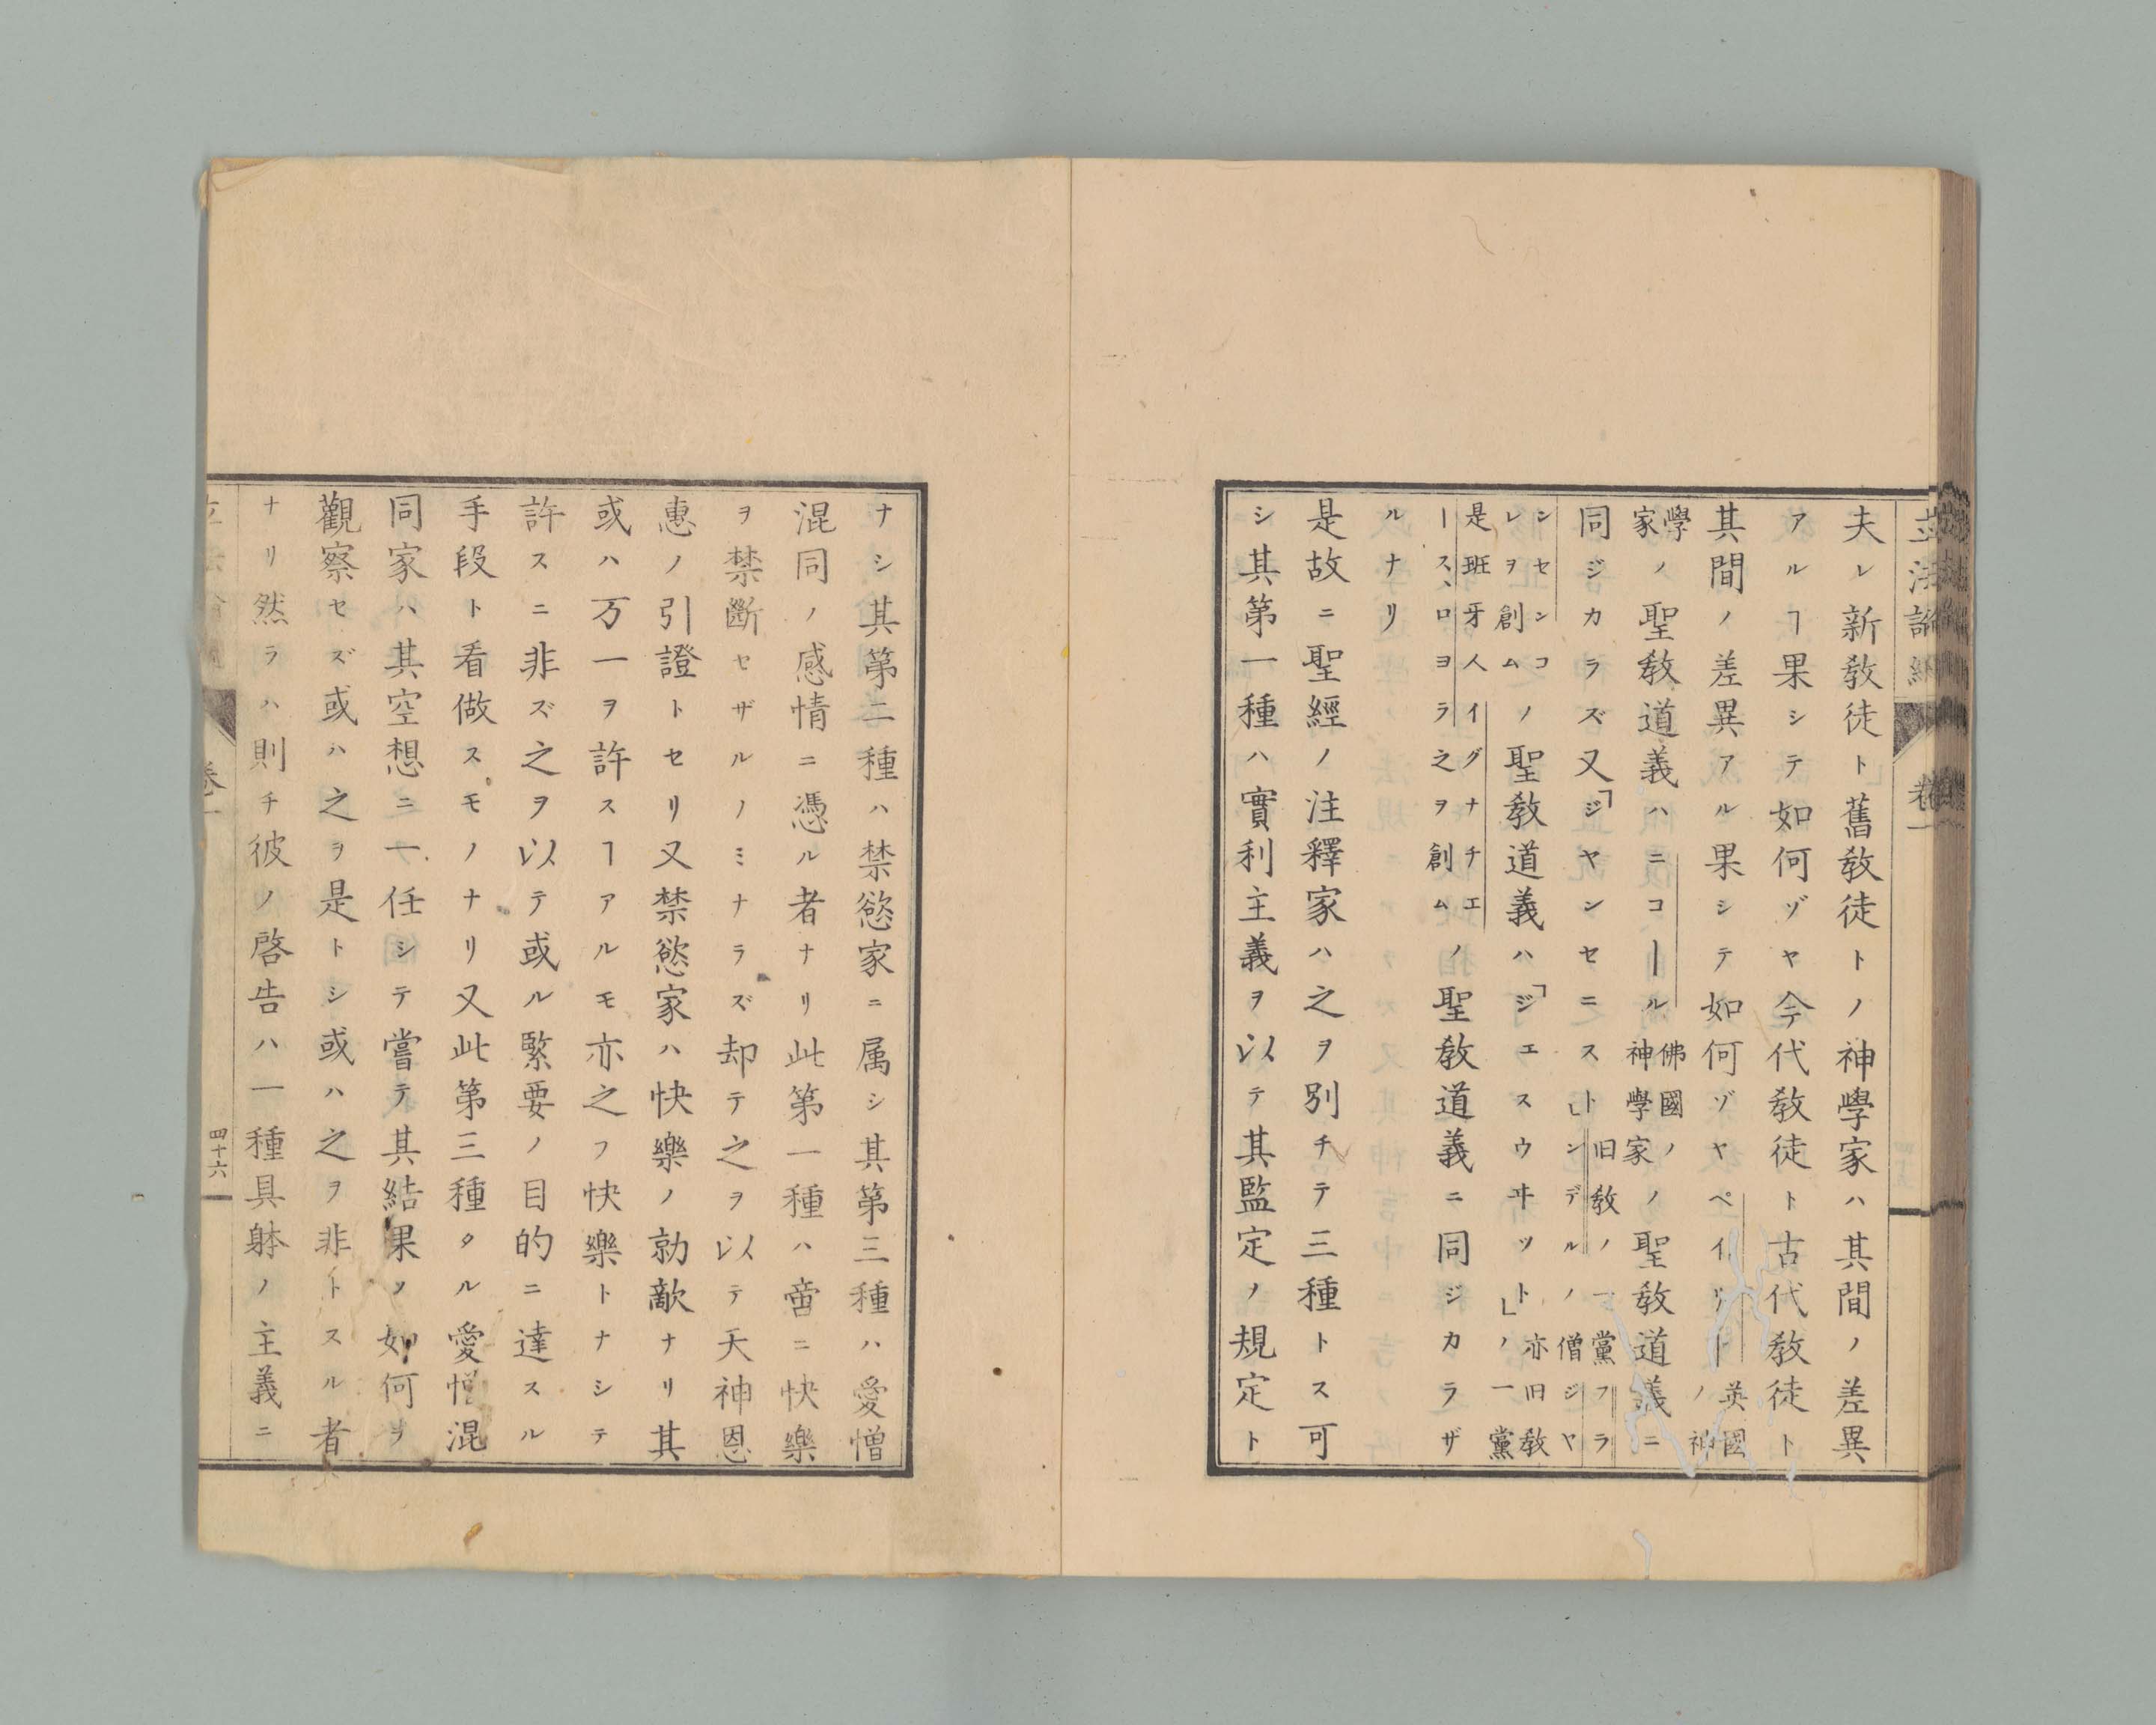 立法論綱 卷一
夫レ新教徒ト舊教徒トノ神學家ハ其間ノ差異
アルヿ果シテ如何ゾヤ今代教徒ト古代教徒ト
其間ノ差異アル果シテ如何ゾヤペイリー英國ノ神
學家ノ聖教道義ハニコール佛國ノ神學家ノ聖教道義ニ
同ジカラズ又「ジヤンセニスト」旧教ノ一黨フランデルノ僧ジヤ
ンセンコレヲ創ムノ聖教道義ハ「ジエスウヰツト」亦旧教ノ一黨
是班牙人イグナチエースロヨラ之ヲ創ムノ聖教道義ニ同ジカラザ
ルナリ
是故ニ聖經ノ注釋家ハ之ヲ別チテ三種トス可
シ其第一種ハ實利主義ヲ以テ其監定ノ規定ト
ナシ其第二種ハ禁慾家ニ属シ其第三種ハ愛憎
混同ノ感情ニ憑ル者ナリ此第一種ハ啻ニ快樂
ヲ禁斷セザルノミナラズ却テ之ヲ以テ天神恩
惠ノ引證トセリ又禁慾家ハ快樂ノ勍敵ナリ其
或ハ万一ヲ許スヿアルモ亦之フ快樂トナシテ
許スニ非ズ之ヲ以テ或ル緊要ノ目的ニ達スル
手段ト看做スモノナリ又此第三種タル愛憎混
同家ハ其空想ニ一任シテ嘗テ其結果ノ如何ヲ
觀察セズ或ハ之ヲ是トシ或ハ之ヲ非トスル者
ナリ然ラハ則チ彼ノ啓告ハ一種具躰ノ主義ニ
卷一 四十六